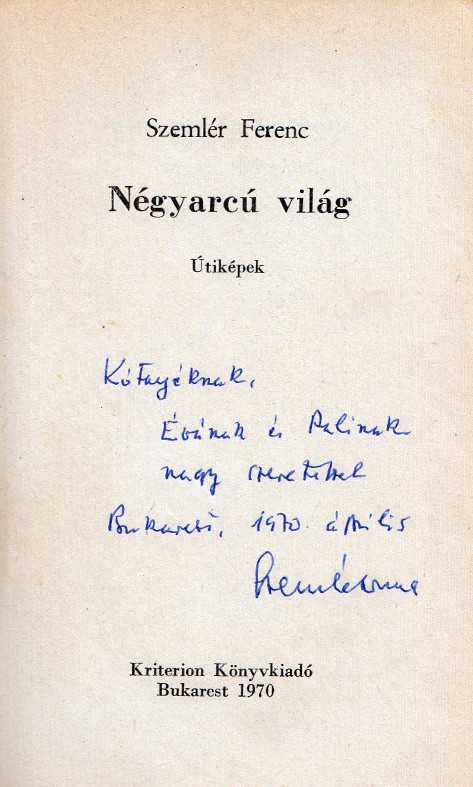 Szemlér Ferenc
Négyarcú világ
Útiképek
Évának és Palinak
nagy szeretettel
Bukarest, 1970. április
Kriterion Könyvkiadó
Bukarest 1970